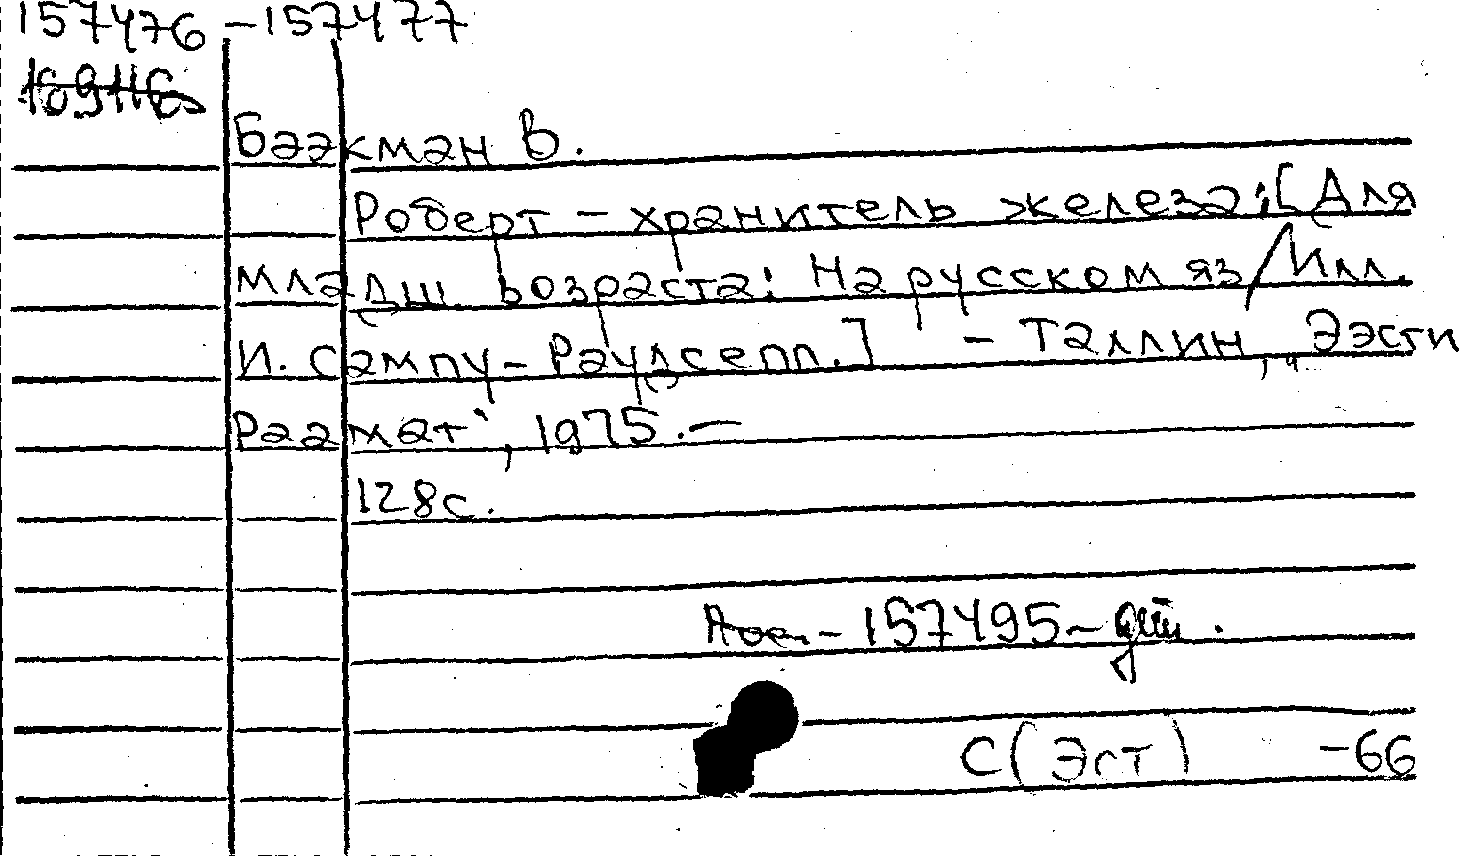 157476 - 157477
169116
Баакман В.
Роберт - хранитель железа; [Для
младш. возраста: На русском яз/Илл.
И. Сампу-Раудсепп.] - Таллин, „Ээсти
Раамат", 1975. -
128с.
- 157495 -
С(Эст) -66